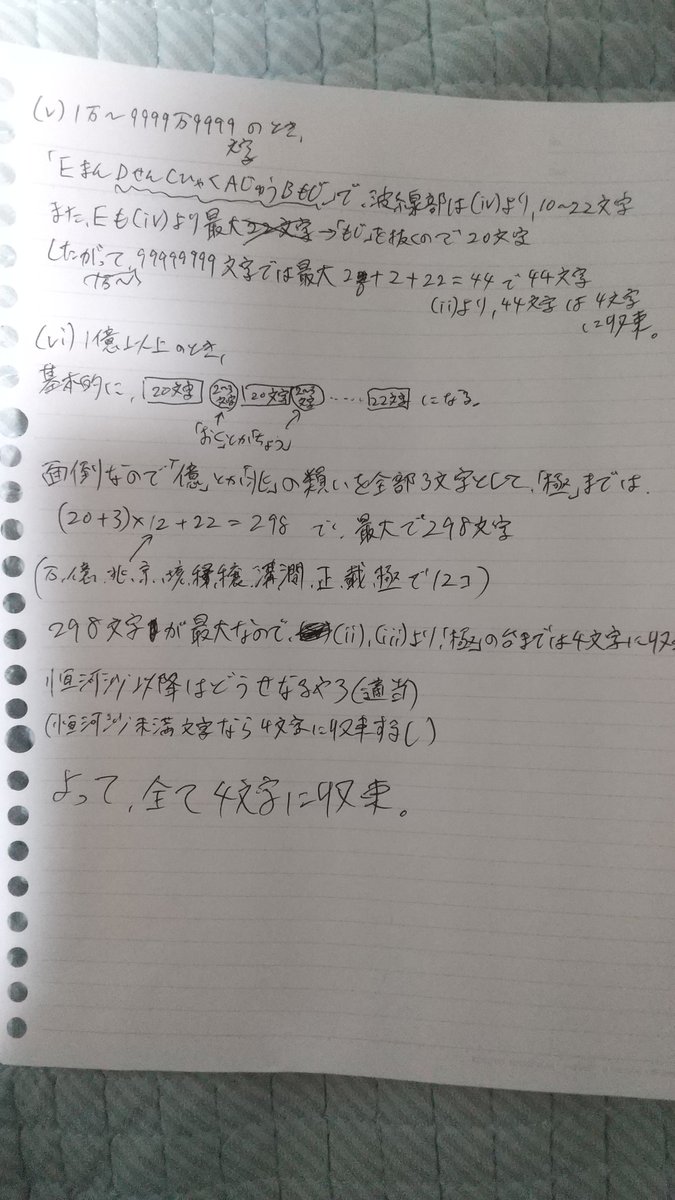 (v) 1万〜9999万9999文字のとき、
「EまんDせんCひゃくAじゅうBもじ」で、波線部は(iv)より、10〜22文字
また、Eも(iv)より最大22文字→「もじ」を抜くので20文字
したがって99999999文字では最大20+2+22=44で44文字
1万〜
(ii)より、44文字は4文字に収束。
(vi) 1億以上のとき、
基本的に、20文字 2〜3文字 20文字 2〜3文字 …… 22文字 になる。
「おく」とか「ちょう」
面倒なので「億」とか「兆」の類いを全部3文字として、「極」までは、
(20+3)×12+22=298 で、最大で298文字
(万、億、兆、京、垓、穣、溝、澗、正、載、極で12コ)
298文字が最大なので、(ii),(iii)より、「極」の台までは4文字に収
恒河沙以降はどうせなるやろ(適当)
(恒河沙未満文字なら4文字に収束するし)
よって、全て4文字に収束。